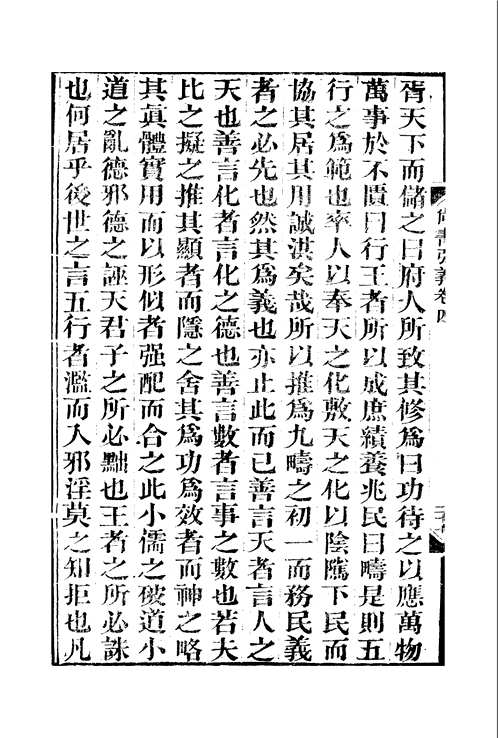 胥天下而儲之曰府人所致其修爲曰功待之以應萬物
萬事於不匱曰行王者所以成庶績養兆民曰疇是則五
行之爲範也率人以奉天之化敷天之化以陰隲下民而
協其居其用誠洪矣哉所以推爲九疇之初一而務民義
者之必先也然其爲義也亦止此而已善言天者言人之
天也善言化者言化之德也善言數者言事之數也若夫
比之擬之推其顯者而隱之舍其爲功爲效者而神之略
其眞體實用而以形似者强配而合之此小儒之破道小
道之亂德邪德之誣天君子之所必黜也王者之所必誅
也何居乎後世之言五行者濫而入邪淫莫之知拒也凡
尚書引義卷四